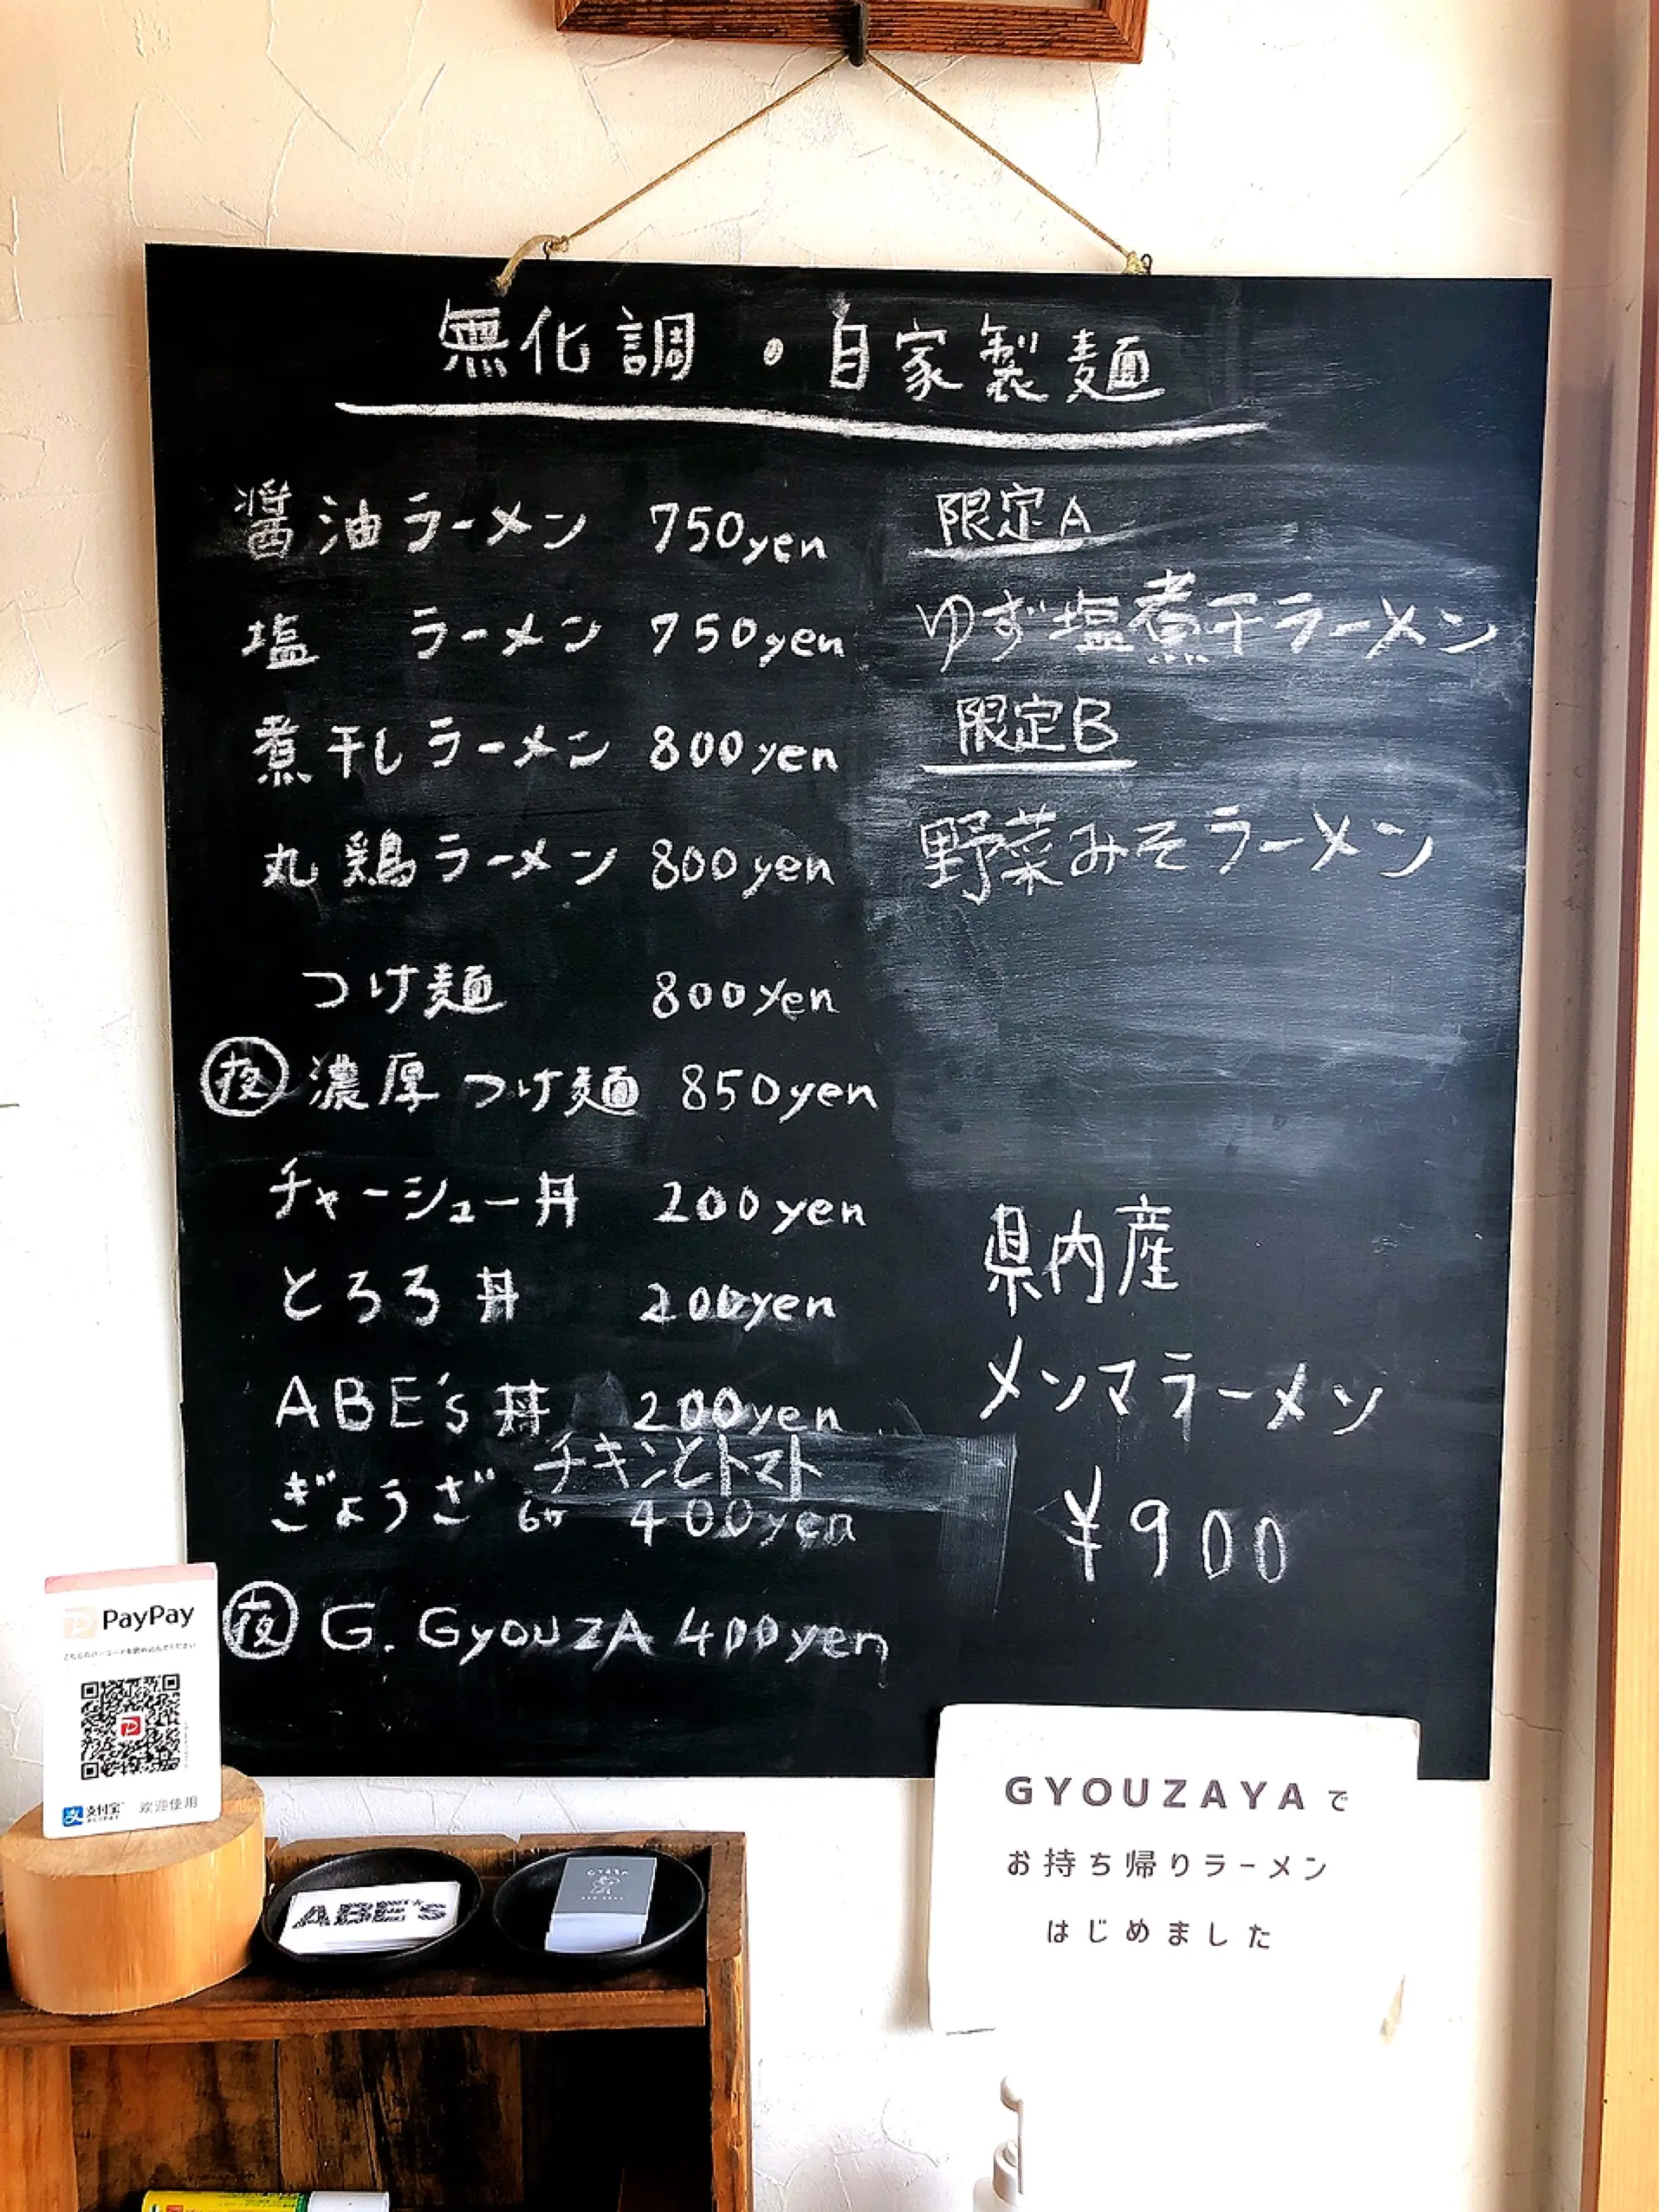 無化調・自家製麺
醤油ラーメン 750yen
塩 ラーメン 750yen
煮干しラーメン 800yen
丸鶏ラーメン 800yen
つけ麺 800yen
夜 濃厚つけ麺 850yen
チャーシュー丼 200yen
とろろ丼 200yen
ABE's丼 200yen
チキンとトマト
ぎょうざ 6ヶ 400yen
夜 G. GyouzA 400yen
限定A
ゆず塩煮干ラーメン
限定B
野菜みそラーメン
県内産
メンマラーメン
¥900
PayPay
こちらのバーコードを読み込んでください
支付宝 欢迎使用
ABE's
GYOUZAYAで
お持ち帰りラーメン
はじめました